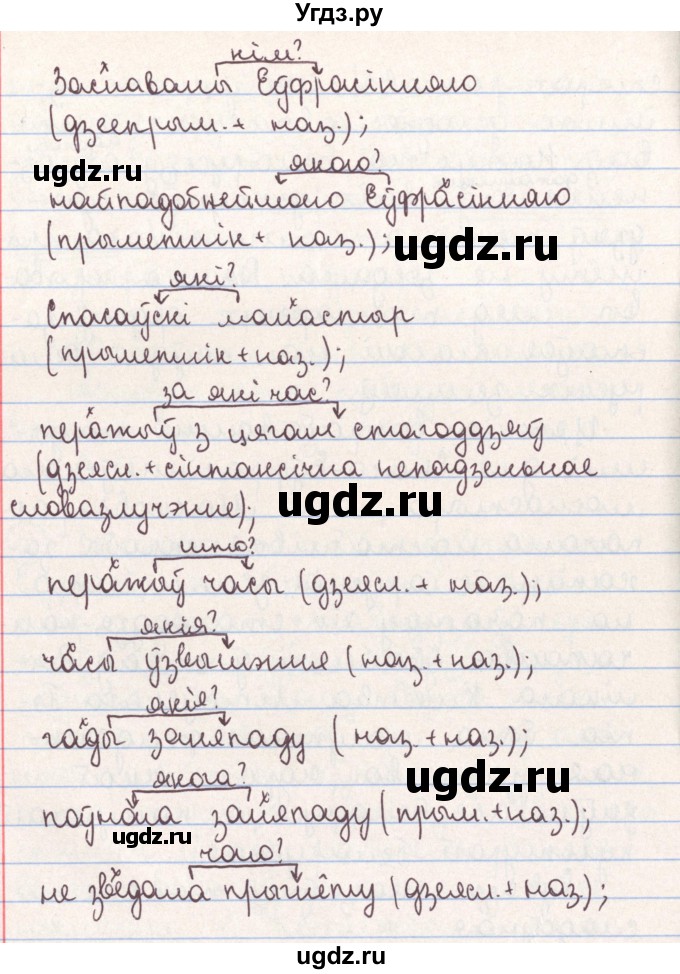 Угдз.ру
кім?
Заснаваны Еўфрасінняю
(дзеепрым. + наз.);
якою?
найпадобнейшаю Еўфрасінняю
(прыметнік + наз.);
які?
Спасаўскі манастыр
(прыметнік + наз.);
за які час?
перажыў з цягам стагоддзяў
(дзеясл. + сінтаксічна непадзельнае
словазлучэнне);
што?
перажыў часы (дзеясл. + наз.);
якія?
часы ўзвышэння (наз. + наз.);
якія?
гады заняпаду (наз. + наз.);
якога?
поўнага заняпаду (прым. + наз.);
чаго?
не зведала прыгнёту (дзеясл. + наз.);
ugdz.ru
ugdz.ru
ugdz.ru
ugdz.ru
ugdz.ru
ugdz.ru
ugdz.ru
ugdz.ru